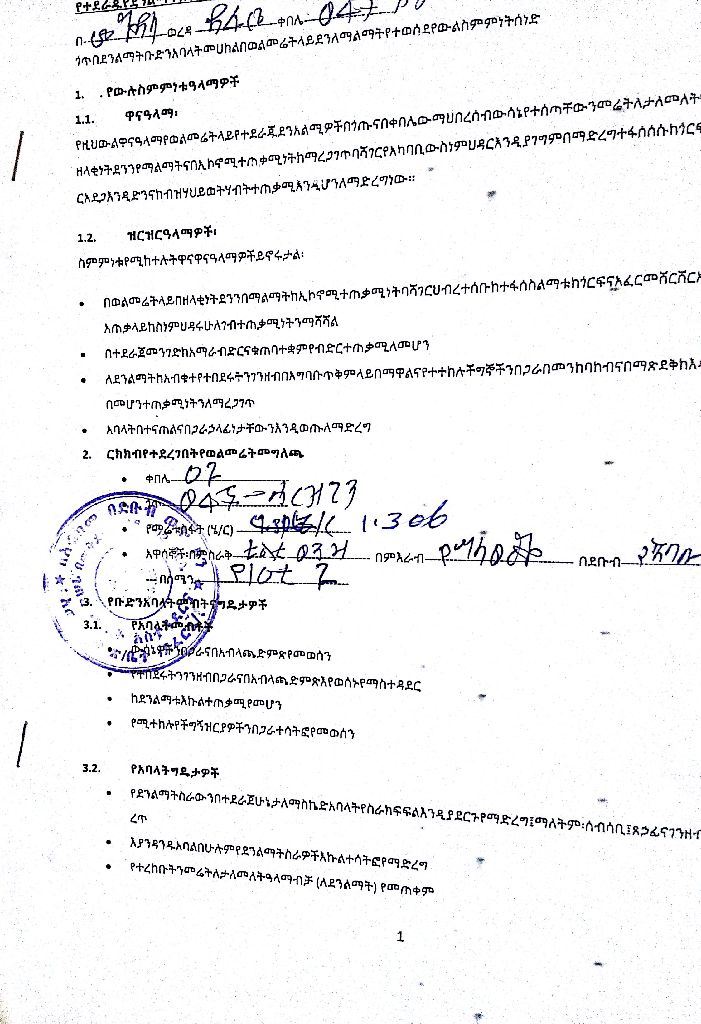 በ ወረዳ ቀበሌ
ጎጥበደንልማትቡድንአባላትመሀከልበወልመሬትላይደንለማልማትየተወሰደየውልስምምነትሰነድ
1. .የውሉስምምነቱዓላማዎች
1.1. ዋናዓላማ፡
የዚህውልዋናዓላማየወልመሬትላይየተደራጁደንአልሚዎችበጎጡናበቀበሌውማህበረሰብውሳኔየተሰጣቸውንመሬትለታለመለት
ዘላቂነትደንንየማልማትናበኢኮኖሚተጠቃሚነትከማረጋገጥባሻገርየአካባቢውስነምህዳርእንዲያገግምበማድረግተፋሰሱከጎርፍ
ርአደጋእንዲድንናከብዝሃህይወትሃብትተጠቃሚእንዲሆንለማድረግነው።
1.2. ዝርዝርዓላማዎች፡
ስምምነቱየሚከተሉትዋናዋናዓላማዎችይኖሩታል፡
• በወልመሬትላይበዘላቂነትደንንበማልማትከኢኮኖሚተጠቃሚነትባሻገርህብረተሰቡከተፋሰስልማቱከጎርፍናአፈርመሸርሸር
አጠቃላይከስነምህዳሩሁለገብተጠቃሚነትንማሻሻል
• በተደራጀመንገድከአማራብድርናቁጠባተቋምየብድርተጠቃሚለመሆን
• ለደንልማትከአብቁተየተበደሩትንገንዘብበአግባቡጥቅምላይበማዋልናየተተከሉችግኞችንበጋራበመንከባከብናበማጽደቅከእ
በመሆንተጠቃሚነትንለማረጋገጥ
• አባላትበተናጠልናበጋራኃላፊነታቸውንእንዲወጡለማድረግ
2. ርክክብየተደረገበትየወልመሬትመግለጫ
• ቀበሌ 02
• ጎጥ
• የመሬቱስፋት (ሄ/ር) 1.306
• አዋሳኞችበምስራቅ በምእራብ በደቡብ
በሰሜን
3. የቡድንአባላትመብትናግዴታዎች
3.1. የአባላትመብቶች
• ውሳኔዎችንበጋራናበአብላጫድምጽየመወሰን
• የተበደሩትንገንዘብበጋራናበአብላጫድምጽእየወሰኑየማስተዳደር
• ከደንልማቱእኩልተጠቃሚየመሆን
• የሚተከሉየችግኝዝርያዎችንበጋራተሳትፎየመወሰን
3.2. የአባላትግዴታዎች
• የደንልማትስራውንበተደራጀሁኔታለማስኬድአባላትየስራክፍፍልእንዲያደርጉየማድረግ፤ማለትም፡ሰብሳቢ፤ጸኃፊናገንዘብ
ረጥ
• እያንዳንዱአባልበሁሉምየደንልማትስራዎችእኩልተሳትፎየማድረግ
• የተረከቡትንመሬትለታለመለትዓላማብቻ (ለደንልማት) የመጠቀም
1